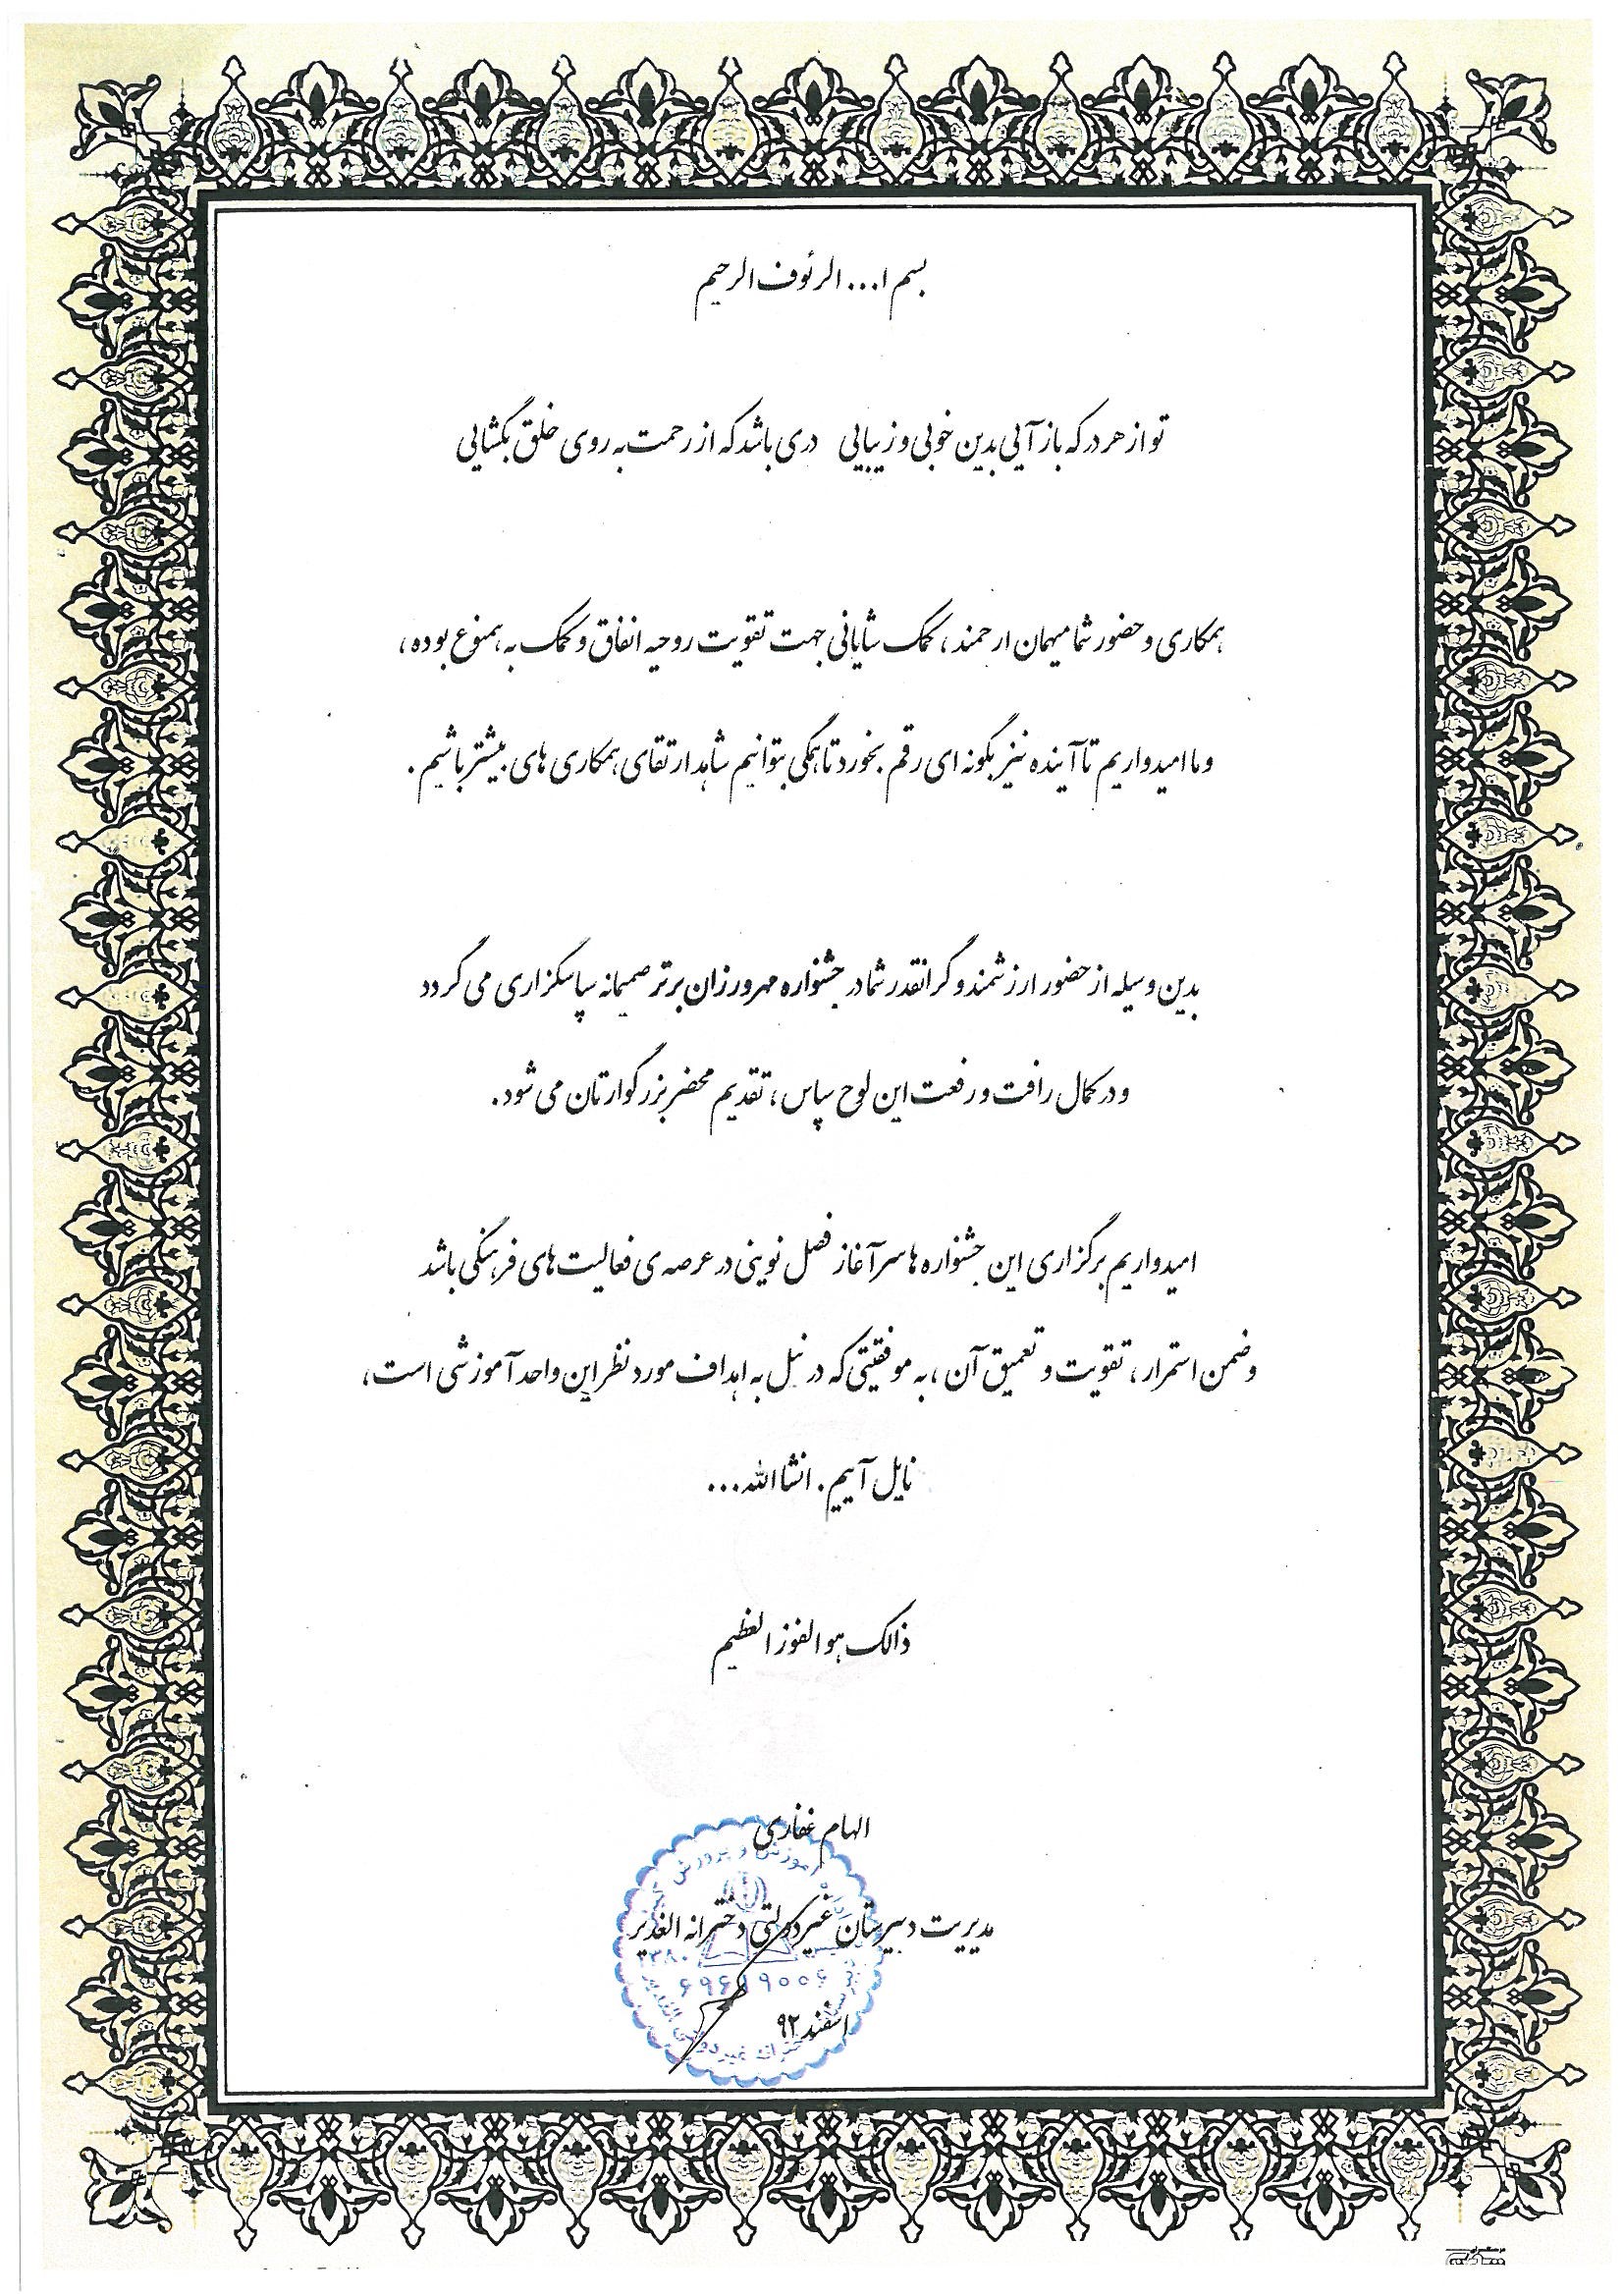 بسم ا... الرئوف الرحیم
تو از هر در که باز آیی بدین خوبی و زیبایی دری باشد که از رحمت به روی خلق بگشایی
همکاری و حضور شما میهمان ارجمند، کمک شایانی جهت تقویت روحیه انفاق و کمک به همنوع بوده،
و ما امیدواریم تا آینده نیز بگونه ای رقم بخورد تا همگی بتوانیم شاهد ارتقای همکاری های بیشتر باشیم.
بدین وسیله از حضور ارزشمند و گرانقدر شما در جشنواره مهرورزان برتر صمیمانه سپاسگزاری می گردد
و در کمال رافت و رفعت این لوح سپاس، تقدیم محضر بزرگوارتان می شود.
امیدواریم برگزاری این جشنواره ها سرآغاز فصل نوینی در عرصه ی فعالیت های فرهنگی باشد
و ضمن استمرار، تقویت و تعمیق آن، به موفقیتی که در نیل به اهداف مورد نظر این واحد آموزشی است،
نایل آییم. انشاالله...
ذالک هو الفوز العظیم
الهام غفاری
آموزش و پرورش
مدیریت دبیرستان غیردولتی دخترانه الغدیر
۱۳۸۰
اسفند ۹۲